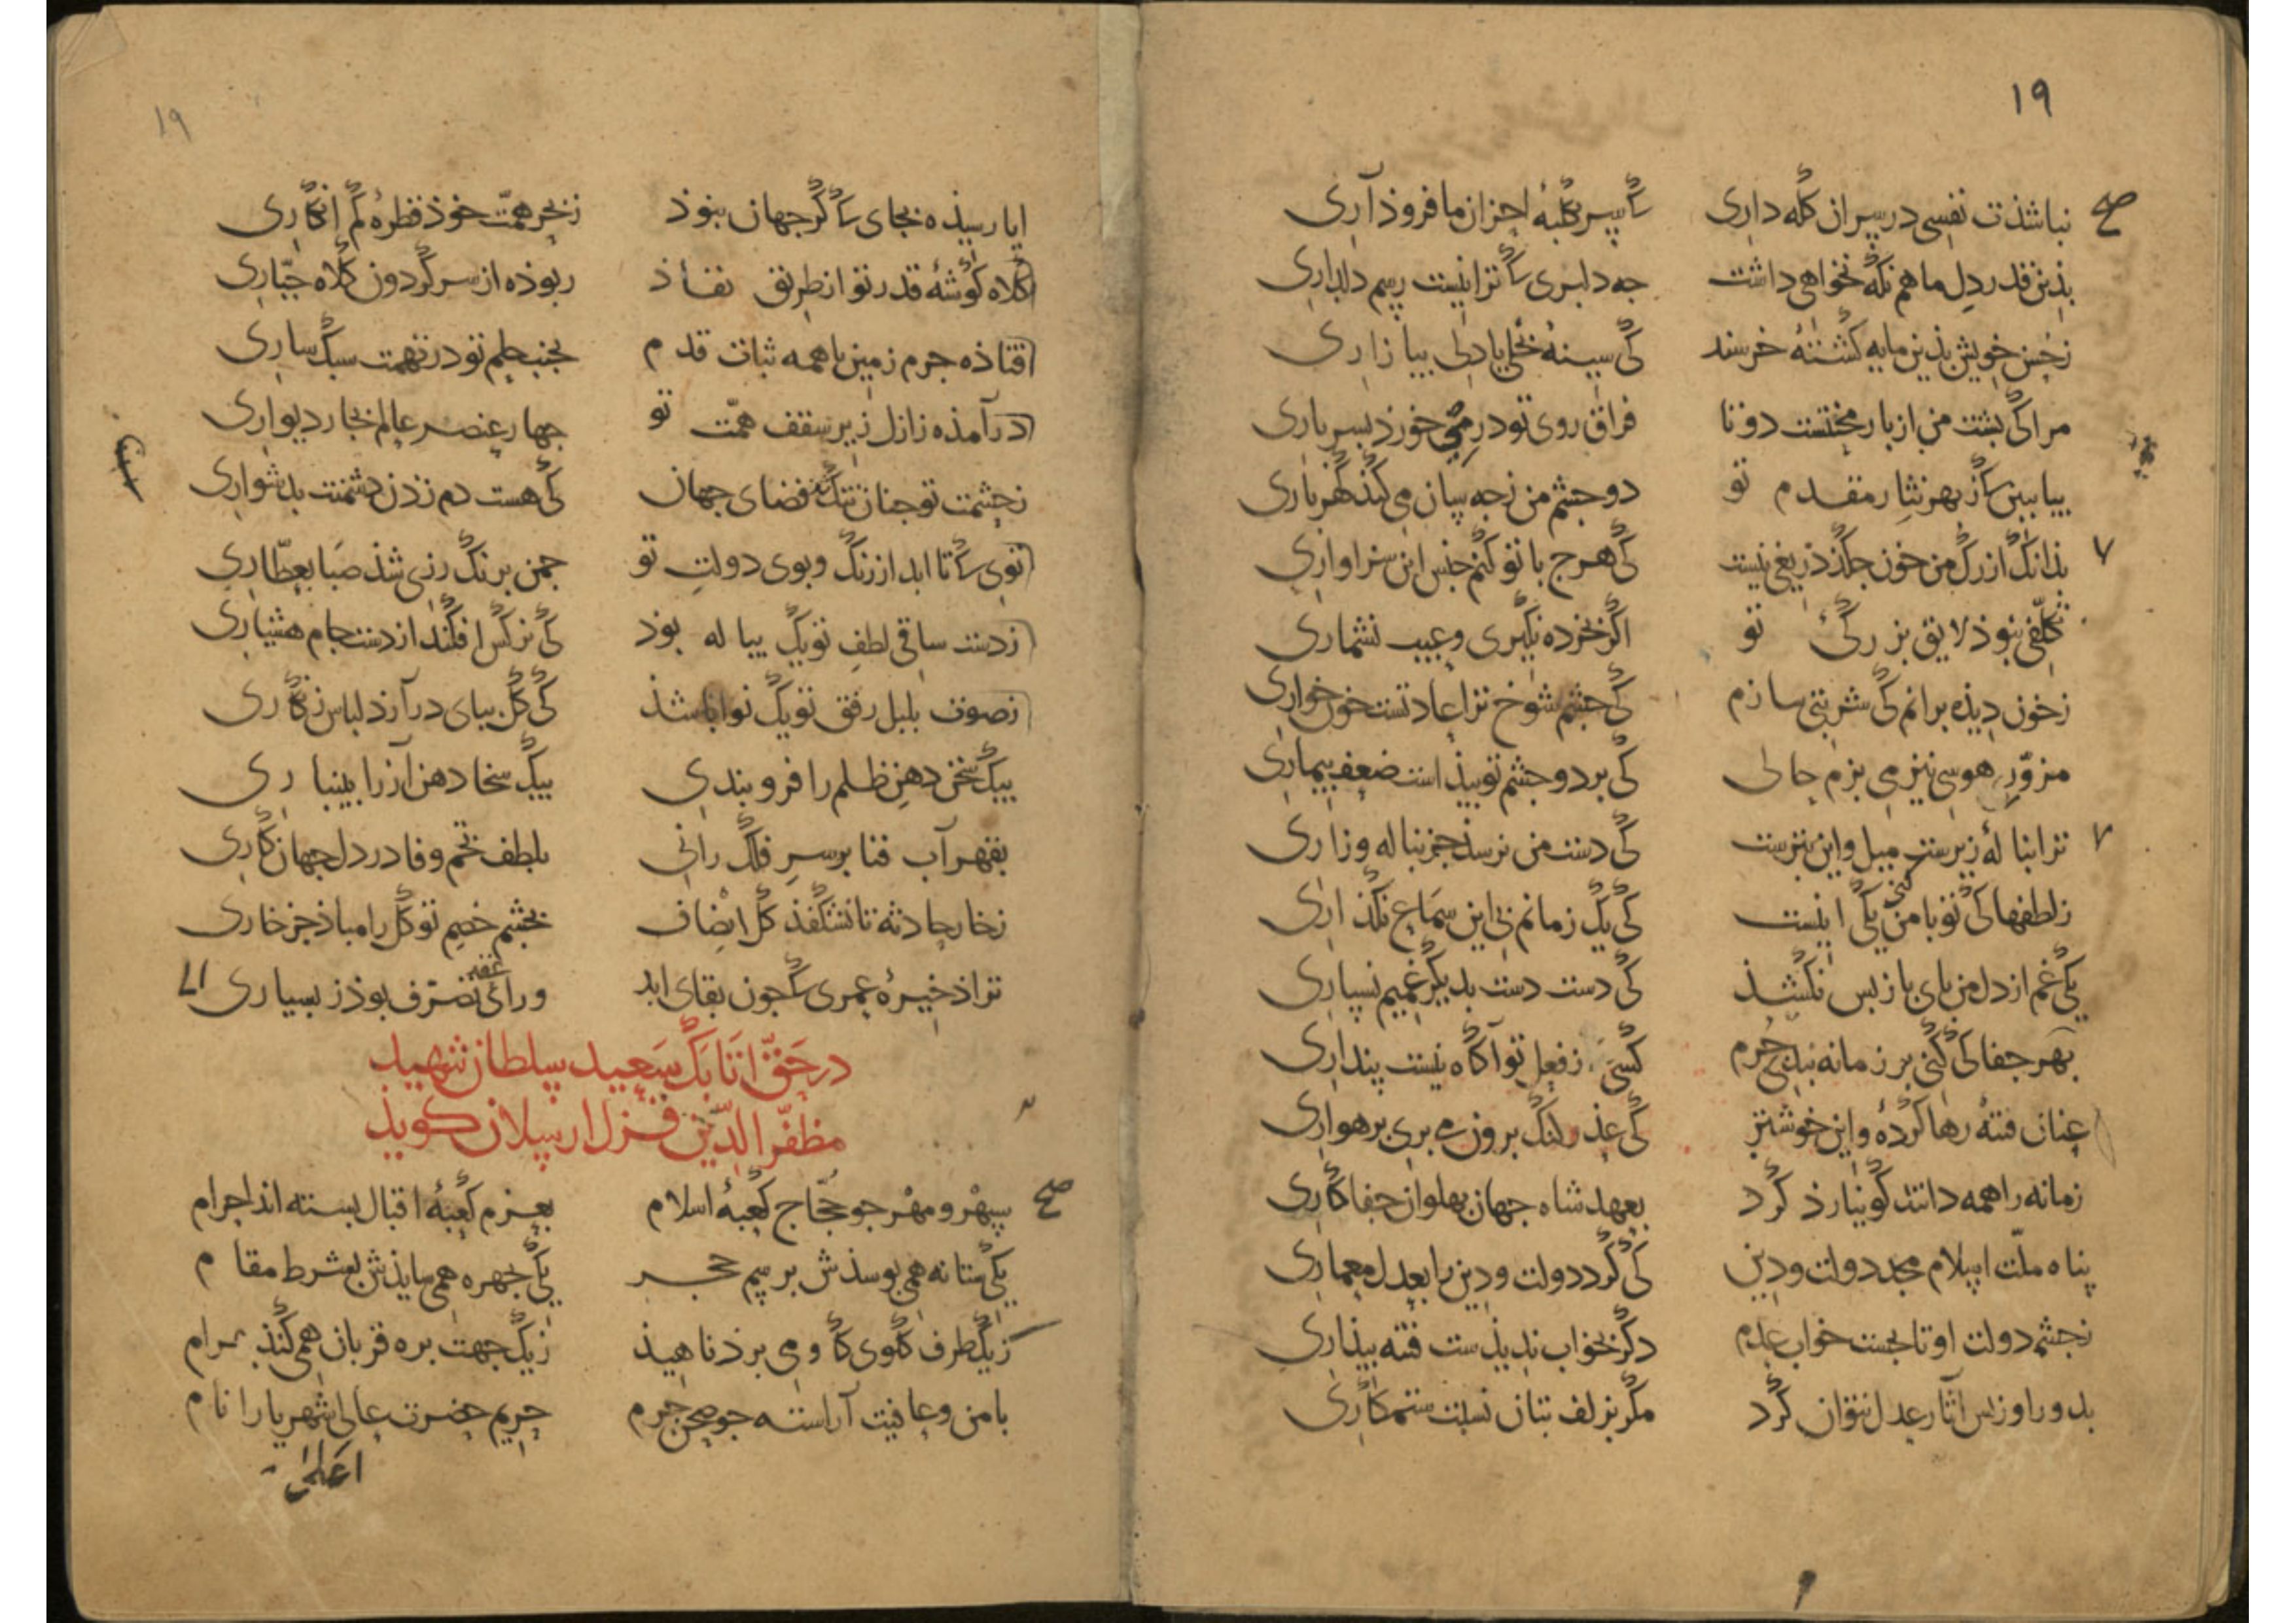 ١٩
نباشذت نفسی در سر ان کله داری کی سر بکلبهٔ احزان ما فروذ آری
بذین قدر دل ما هم نکه نخواهی داشت جه دلبری کی ترا نیست رسم دلداری
ز حسن خویش بذین مایه کشتهٔ خرسند کی سینهٔ بخلی یا دلی بیازاری
مرا کی بشت من از بار محنتست دوتا فراق روی تو در می خورذ بسرباری
بیا ببین کی از بهر نثار مقدم تو دو جشم من ز جه سان می کنذ کهرباری
بذانک از رک من خون جکذ دریغی نیست کی هرج با تو کنم جنس این سزاواری
تکلفی نبوذ لایق بزرکی تو اکر بخرده نکیری و عیب نشماری
ز خون دیذه برانم کی شربتی سازم کی جشم شوخ ترا عادتست خون خواری
مزوّر هوسی نیز می بزم حالی کی بر دو جشم تو بیذاست ضعف بیماری
ترا بنالهٔ زیرست میل و این بترست کی دست من نرسذ جز بناله و زاری
ز لطفها کی تو با من کنی یکی اینست کی یک زمانم بی این سماع نکذاری
یکی غم از دل من بای باز بس نکشذ کی دست دست بدیکر غمیم نسپاری
بهر جفا کی کنی بر زمانه بندی جرم کسی ز فعل تو آکاه نیست پنداری
عنان فتنه رها کردهٔ و این خوشتر کی عذر لنک برون می بری برهواری
زمانه را همه دانند کو نیارذ کرد بعهد شاه جهان بهلوان جفاکاری
پناه ملّت اسلام مجد دولت و دین کی کرد دولت و دین را بعدل معماری
ز جشم دولت او تا بجست خواب عدم دکر بخواب ندیذست فتنه بیذاری
بدور او ز بس آثار عدل نتوان کرد مکر بزلف بتان نسبت ستمکاری
١٩
ایا رسیذه بجای کی کر جهان بنوذ ز بحر همّت خوذ قطرهٔ کم انکاری
کلاه کوشهٔ قدر تو از طریق نفاذ ربوذه از سر کردون کلاه جبّاری
افتاذه جرم زمین با همه ثبات قدم بجنب حلم تو در تهمت سبک ساری
درآمذه ز ازل زیر سقف همّت تو جهار عنصر عالم بخار دیواری
ز جشمت تو جنان تنک شذ فضای جهان کی هست دم زدن دشمنت بدشواری
توی کی تا ابد از رنک و بوی دولت تو جمن برنک رزی شذ صبا بعطّاری
ز دست ساقی لطف تو یک بیاله بوذ کی نرکس افکند از دست جام هشیاری
ز صوت بلبل رفق تو یک نوا باشذ کی کل ببای درآرذ لباس زنکاری
بیک سخن دهن ظلم را فرو بندی بیک سخا دهن آز را بینباری
بقهر آب فنا بر سر فلک رانی بلطف تخم وفا در دل جهان کاری
ز خار حادثه تا نشکفذ کل انصاف بجشم خصم تو کل را مباذ جز خاری
ترا ذخیرهٔ عمری کی جون بقای ابد ورای تصرّف بوذ ز بسیاری
در حقّ اتابک سعید سلطان شهید
مظفّر الدّین قزل ارسلان کویذ
سپهر و مهر جو حجّاج کعبهٔ اسلام بعزم کعبهٔ اقبال بسته اند احرام
یکی ستانه همی بوسذش برسم حجر یکی جهره همی سایذش بشرط مقام
ز یک طرف کلوی کاو می برد ناهیذ ز یک جهت بره قربان همی کنذ بهرام
بامن و عافیت آراسته جو صحن حرم حریم حضرت عالی شهریار انام
اعلی